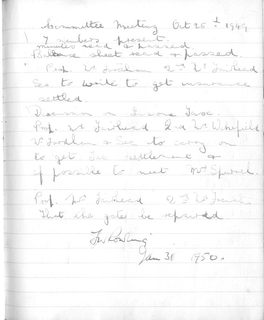 Committee Meeting Oct 28th 1949
7 members present.
minutes read & passed
Balance sheet read & passed.
Prop. W Fordham 2nd W Fairhead
Sec to write to get insurance
settled.
Discussion on Income Tax.
Prop. W Fairhead 2nd W Wakefield
W Fordham & Sec to carry on
to get the settlement &
if possible to meet Mr
Prop. W Fairhead 2nd W French
That the gates be repaired
Jan 31 1950.